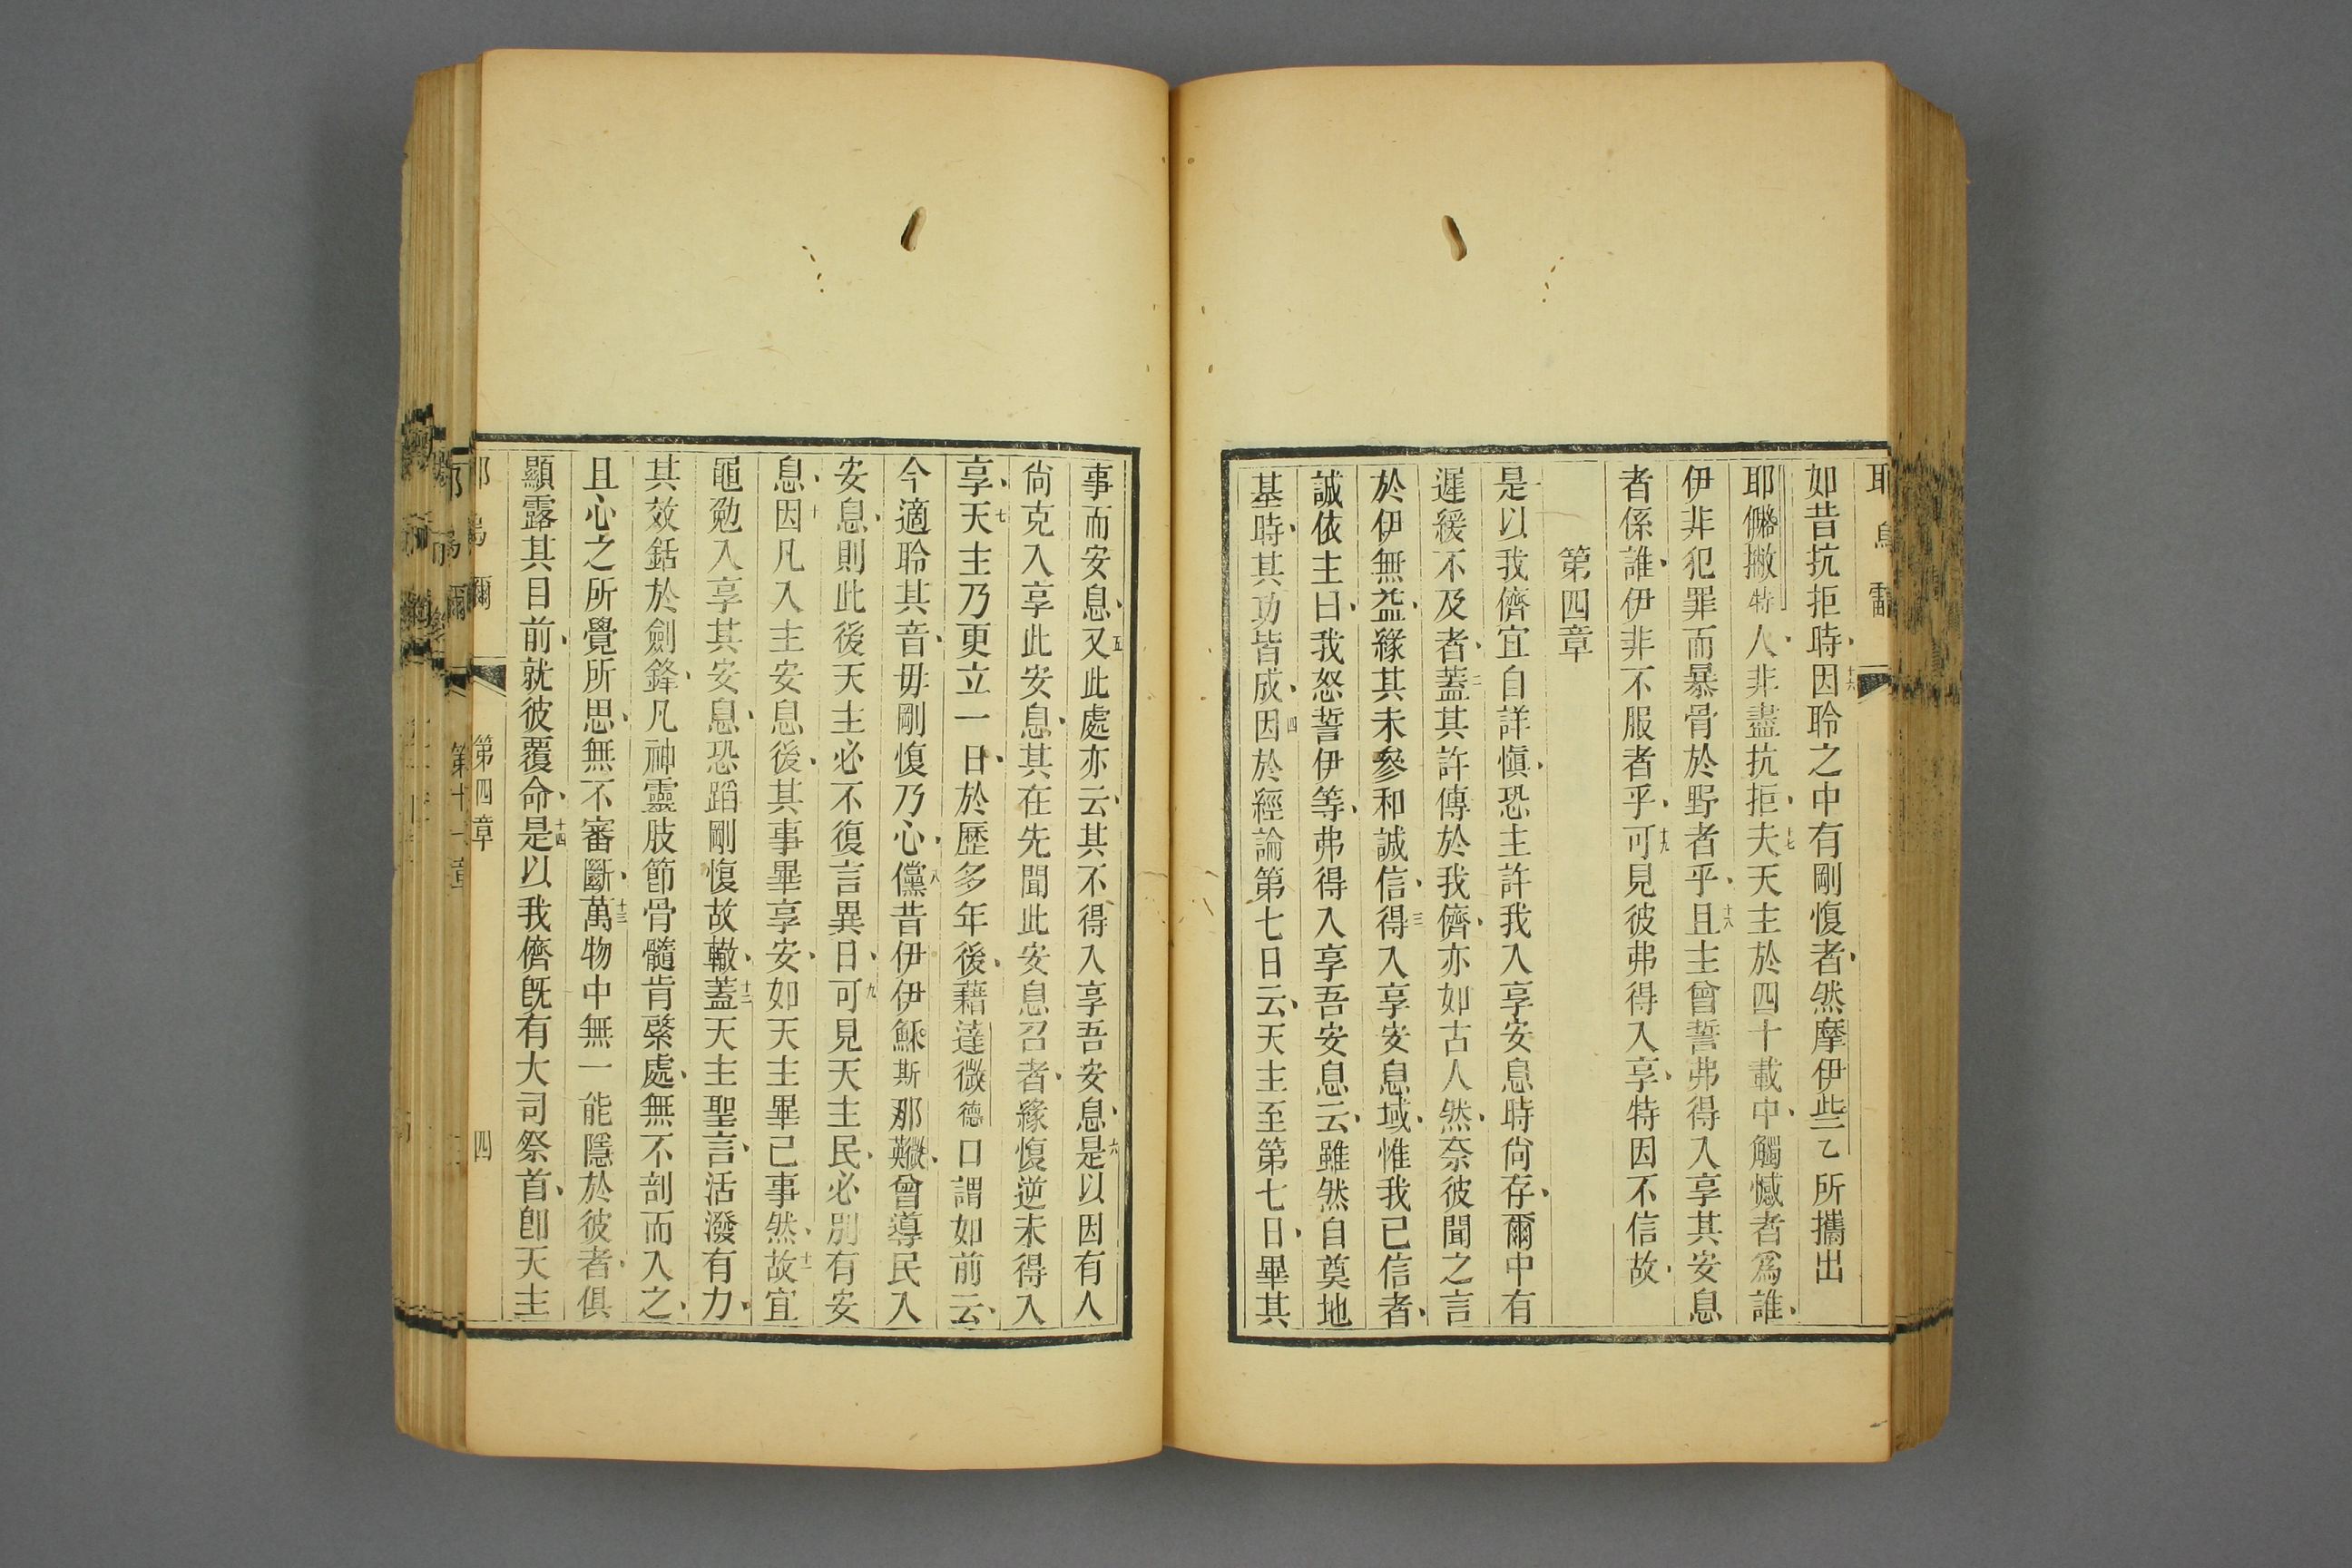 如昔抗拒時十六因聆之中有剛愎者然摩伊些乙所攜出
耶撇特人非盡抗拒十七夫天主於四十載中觸憾者爲誰
伊非犯罪而暴骨於野者乎十八且主曾誓弗得入享其安息
者係誰伊非不服者乎十九可見彼弗得入享特因不信故
第四章
是以我儕宜自詳愼恐主許我入享安息時尙存爾中有
遲緩不及者二蓋其許傳於我儕亦如古人然奈彼聞之言
於伊無益緣其未參和誠信三得入享安息域惟我已信者
誠依主曰我怒誓伊等弗得入享吾安息云雖然自奠地
基時其功皆成四因於經論第七日云天主至第七日畢其
事而安息五又此處亦云其不得入享吾安息六是以因有人
尙克入享此安息其在先聞此安息召者緣愎逆未得入
享七天主乃更立一日於歷多年後藉達微德口謂如前云
今適聆其音毋剛愎乃心八儻昔伊伊穌斯那曾導民入
安息則此後天主必不復言異日九可見天主民必別有安
息十因凡入主安息後其事畢享安如天主畢己事然十一故宜
黽勉入享其安息恐蹈剛愎故轍十二蓋天主聖言活潑有力
其效銛於劍鋒凡神靈肢節骨髓肯綮處無不剖而入之
且心之所覺所思無不審斷十三萬物中無一能隱於彼者俱
顯露其目前就彼覆命十四是以我儕旣有大司祭首卽天主
爾
第四章
四